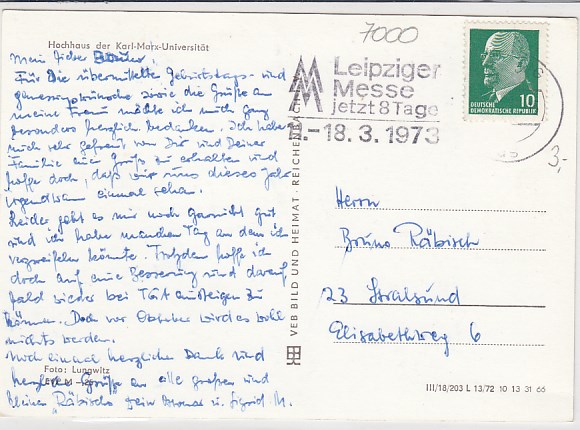 7000
Hochhaus der Karl-Marx-Universität
Mein lieber
Für Die übermittelte Geburtstags- und
genesungswünsche sowie die Grüße an
meine Frau möchte ich mich ganz
besonders herzlich bedanken. Ich habe
mich sehr gefreut von Dir und Deiner
Familie eine Gruß zu erhalten und
hoffe doch, daß wir uns dieses Jahr
irgendwann einmal sehen.
Leider geht es mir noch garnicht gut
und ich habe manchen Tag an dem ich
verzweifeln könnte. Trotzdem hoffe ich
doch auf eine Besserung und darauf
bald wieder bei zu
können. Doch vor Oktober wird es wohl
nichts werden.
Noch einmal herzliche Dank und
herzliche Grüße an alle großen und
kleinen Räbischs Dein und Sigrid M.
Foto: Lungwitz
VEB BILD UND HEIMAT · REICHENBACH
Leipziger
Messe
jetzt 8 Tage
11.–18. 3. 1973
10
DEUTSCHE
DEMOKRATISCHE REPUBLIK
3,-
Herrn
Bruno Räbisch
23 Stralsund
Elisabethweg 6
III/18/203 L 13/72 10 13 31 66